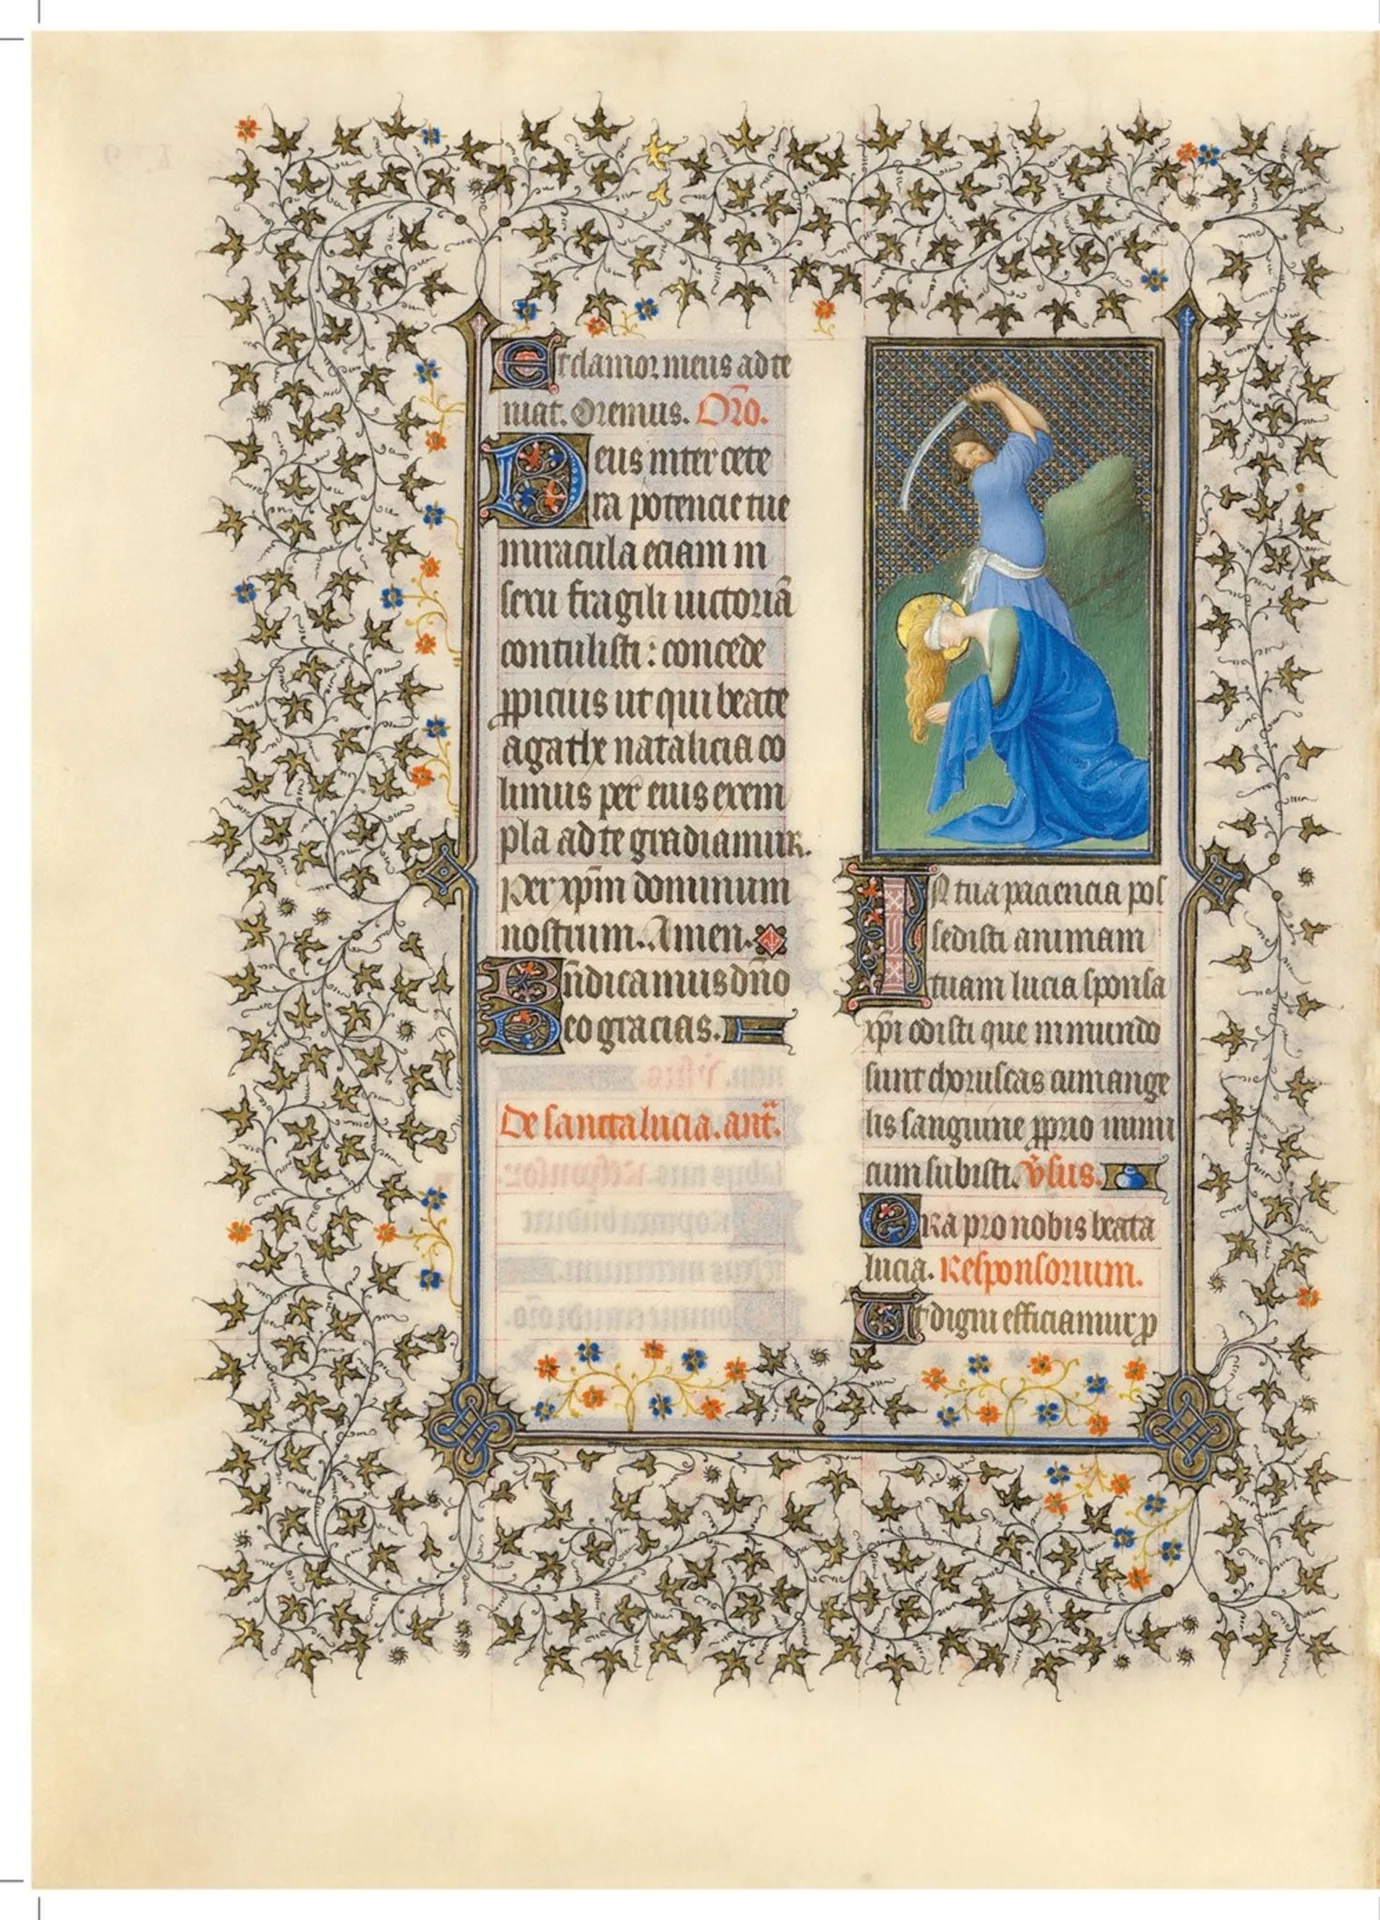 Et clamor meus ad te
uiat. Oremus. Orõ.
Deus inter cete
ra potencie tue
miracula eciam in
sexu fragili uictoriã
contulisti : concede
ppicius ut qui beate
agathe natalicia co
limus per eius exem
pla ad te gradiamur.
Per xpm̃ dominum
nostrum. Amen.
Bñdicamus dño
Deo gracias.
De sancta lucia. añt.
In tua paciencia pos
sedisti animam
tuam lucia sponsa
xpi odisti que in mundo
sunt choruscas cum ange
lis sanguine pprio inimi
cum subisti. v̾sus.
Ora pro nobis beata
lucia. Responsorium.
Ut digni efficiamur p